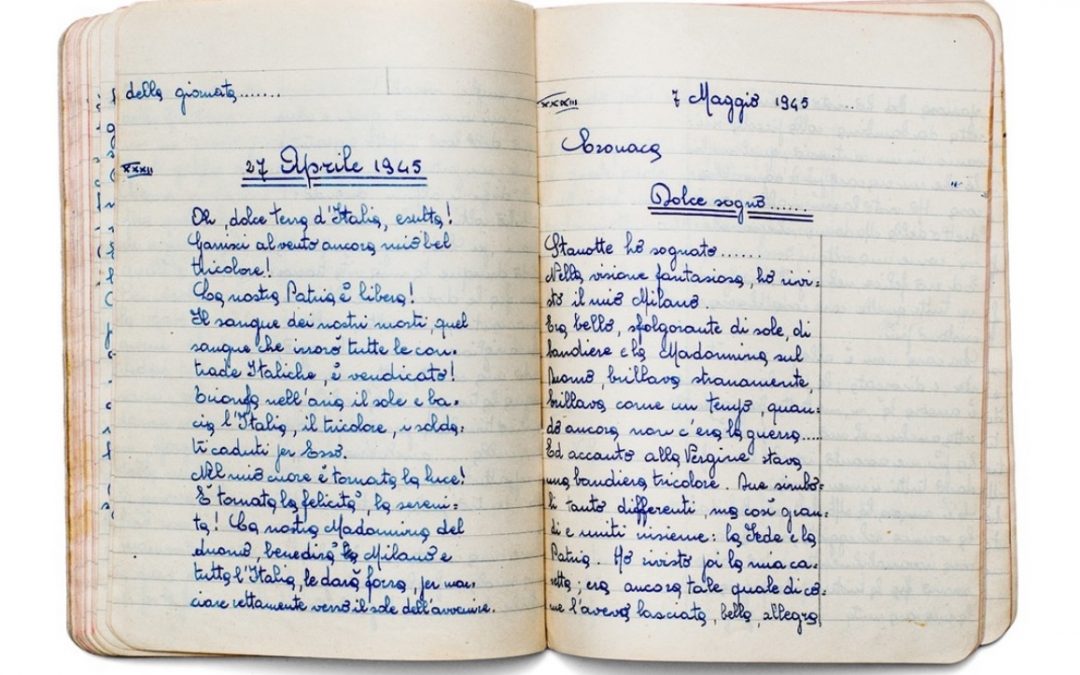 della giornata.......
XXXII
27 Aprile 1945
Oh, dolce terra d'Italia, esulta!
Garrisci al vento ancora mio bel
tricolore!
La nostra Patria è libera!
Il sangue dei nostri morti, quel
sangue che irrorò tutte le con-
trade Italiche, è vendicato!
Trionfa nell'aria il sole e ba-
cia l'Italia, il tricolore, i solda-
ti caduti per Essa.
Nel mio cuore è tornata la luce!
È tornata la felicità, la sereni-
tà! La nostra Madonnina del
duomo, benedirà la Milano e
tutta l'Italia, le darà forza, per mar-
ciare rettamente verso il sole dell'avvenire.
XXXIII
7 Maggio 1945
Cronaca
Dolce sogno......
Stanotte ho sognato......
Nella visione fantasiosa, ho rivi-
sto il mio Milano.
Era bello, sfolgorante di sole, di
bandiere e la Madonnina sul
Duomo, brillava stranamente,
brillava come un tempo, quan-
do ancora non c'era la guerra.....
Ed accanto alla Vergine stava
una bandiera tricolore. Due simbo-
li tanto differenti, ma così gran-
di e uniti insieme: la Fede e la
Patria. Ho rivisto poi la mia ca-
setta; era ancora tale quale di co-
me l'avevo lasciata, bella, allegra